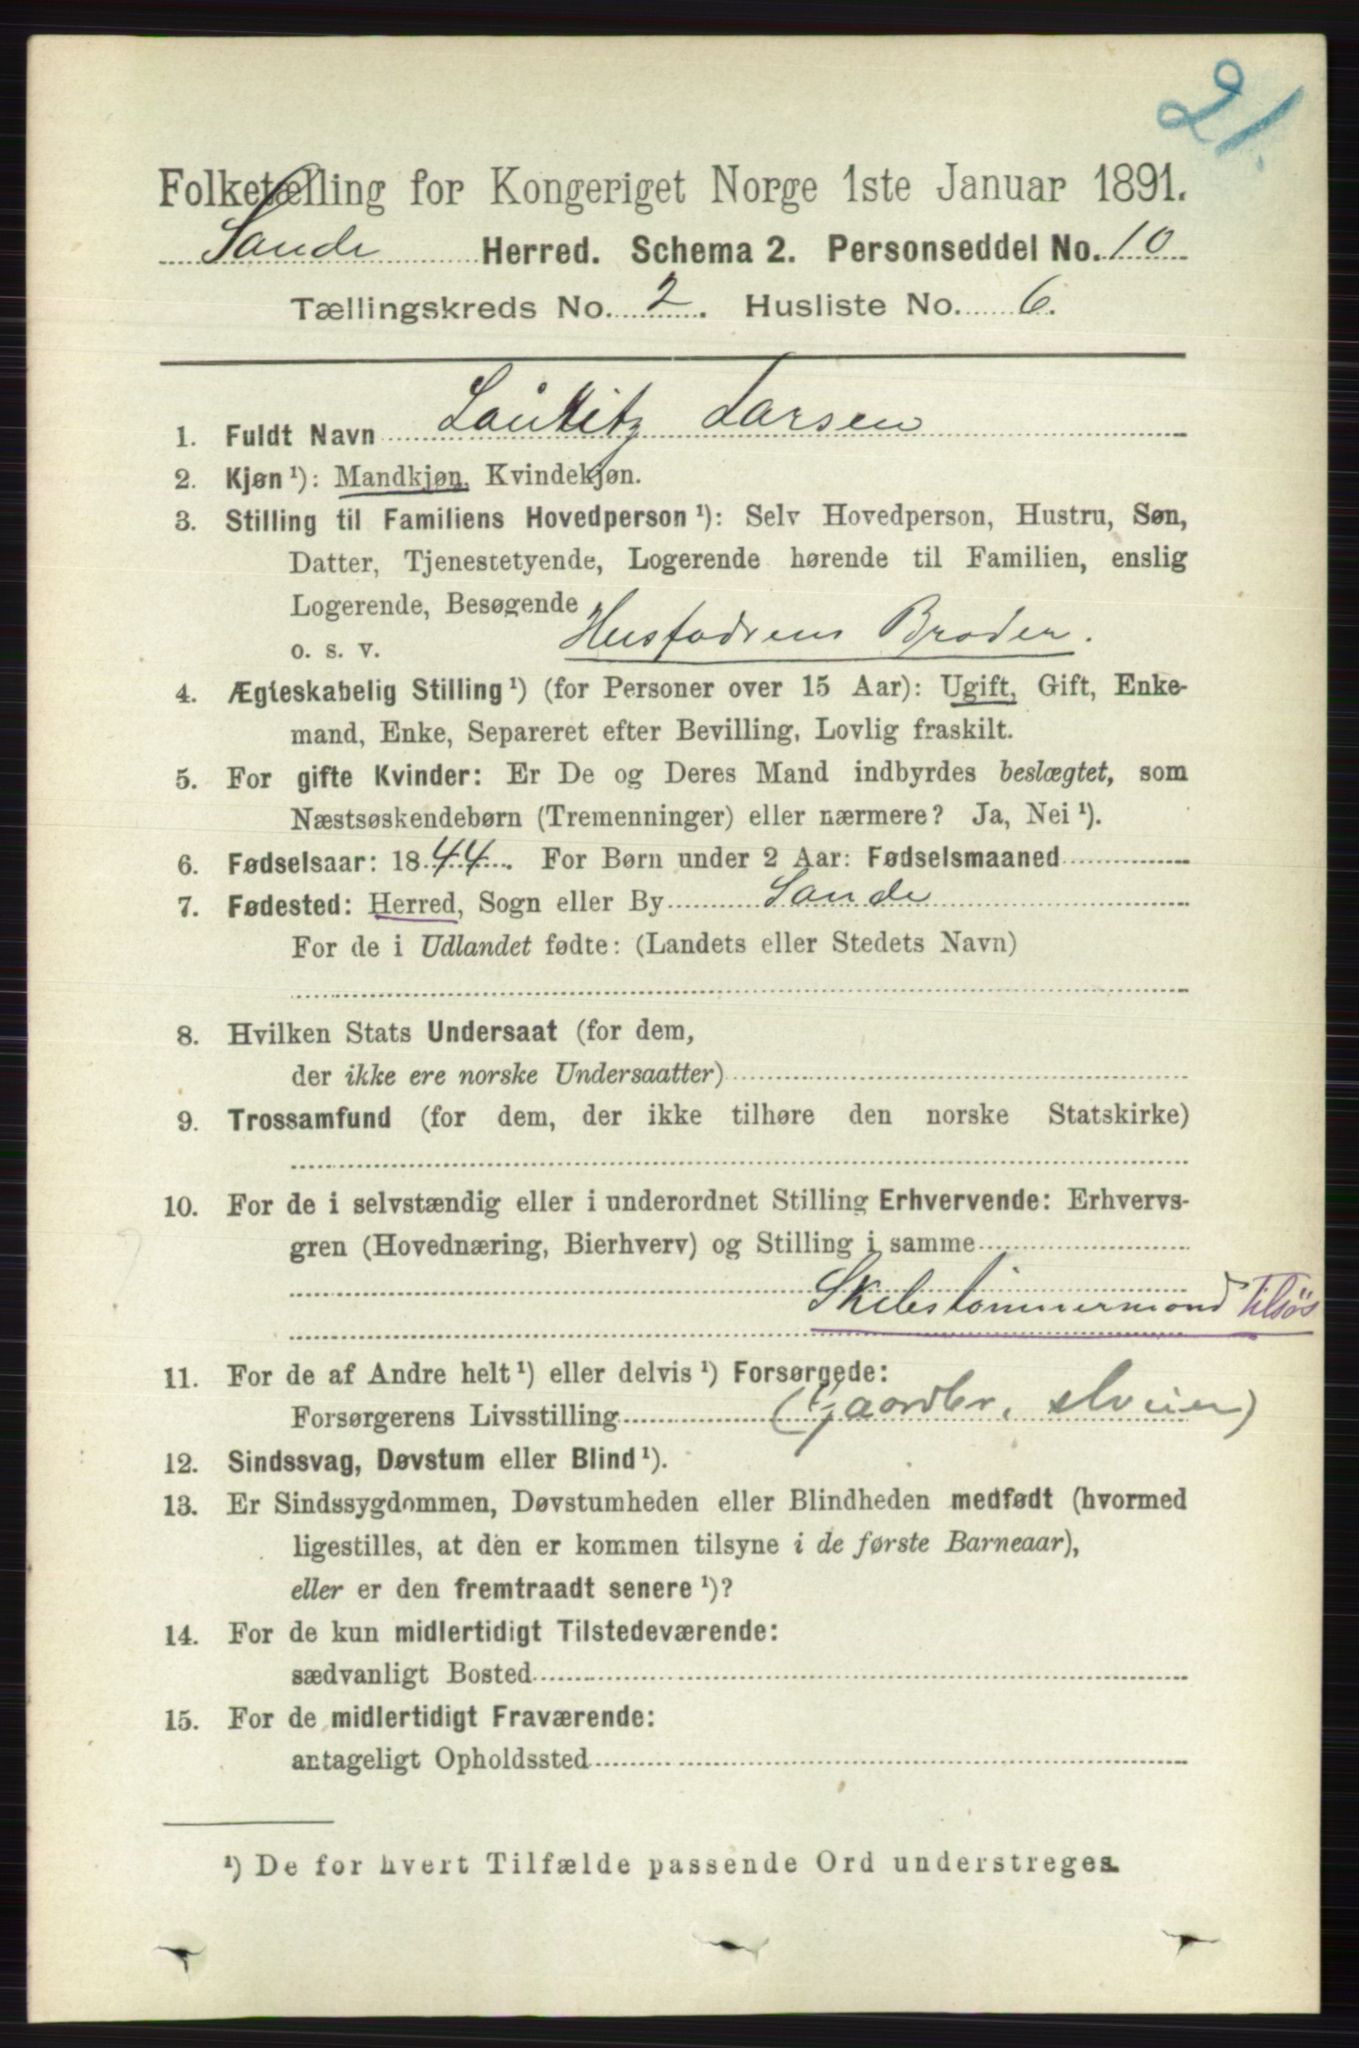 21.
Folketælling for Kongeriget Norge 1ste Januar 1891.
Sande Herred. Schema 2. Personseddel No. 10
Tællingskreds No. 2. Husliste No. 6.
1. Fuldt Navn Lauritz Larsen
2. Kjøn ¹): Mandkjøn, Kvindekjøn.
3. Stilling til Familiens Hovedperson ¹): Selv Hovedperson, Hustru, Søn,
Datter, Tjenestetyende, Logerende hørende til Familien, enslig
Logerende, Besøgende
o. s. v. Husfadrens Broder.
4. Ægteskabelig Stilling ¹) (for Personer over 15 Aar): Ugift, Gift, Enke-
mand, Enke, Separeret efter Bevilling, Lovlig fraskilt.
5. For gifte Kvinder: Er De og Deres Mand indbyrdes beslægtet, som
Næstsøskendebørn (Tremenninger) eller nærmere? Ja, Nei ¹).
6. Fødselsaar: 1844. For Børn under 2 Aar: Fødselsmaaned
7. Fødested: Herred, Sogn eller By Sande
For de i Udlandet fødte: (Landets eller Stedets Navn)
8. Hvilken Stats Undersaat (for dem,
der ikke ere norske Undersaatter)
9. Trossamfund (for dem, der ikke tilhøre den norske Statskirke)
10. For de i selvstændig eller i underordnet Stilling Erhvervende: Erhvervs-
gren (Hovednæring, Bierhverv) og Stilling i samme
Skibstømmermand tilsøs
11. For de af Andre helt ¹) eller delvis ¹) Forsørgede:
Forsørgerens Livsstilling (Gaardbr. selveier)
12. Sindssvag, Døvstum eller Blind ¹).
13. Er Sindssygdommen, Døvstumheden eller Blindheden medfødt (hvormed
ligestilles, at den er kommen tilsyne i de første Barneaar),
eller er den fremtraadt senere ¹)?
14. For de kun midlertidigt Tilstedeværende:
sædvanligt Bosted
15. For de midlertidigt Fraværende:
antageligt Opholdssted
¹) De for hvert Tilfælde passende Ord understreges.